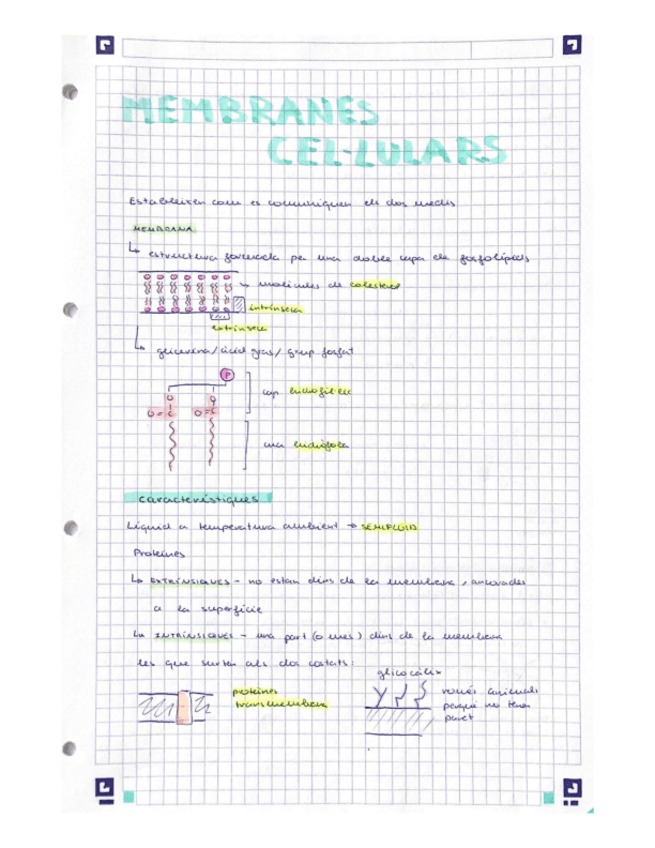 MEMBRANES
CEL·LULARS
Estableixen com es comuniquen els dos medis
MEMBRANA
↳ estructura formada per una doble capa de fosfolípids
→ molècules de colesterol
intrínseca
extrínseca
↳ glicerina/àcid gras/grup fosfat
P
O O
O=C O=C
cap hidrofílic
cua hidròfoba
Característiques
Líquid a temperatura ambient → SEMIFLUID
Proteïnes
↳ EXTRÍNSIQUES - no estan dins de la membrana, ancorades
a la superfície
↳ INTRÍNSIQUES - una part (o més) dins de la membrana
les que surten als dos costats:
glicocàlix
proteïnes
transmembrana
només animals
perquè no tenen
paret